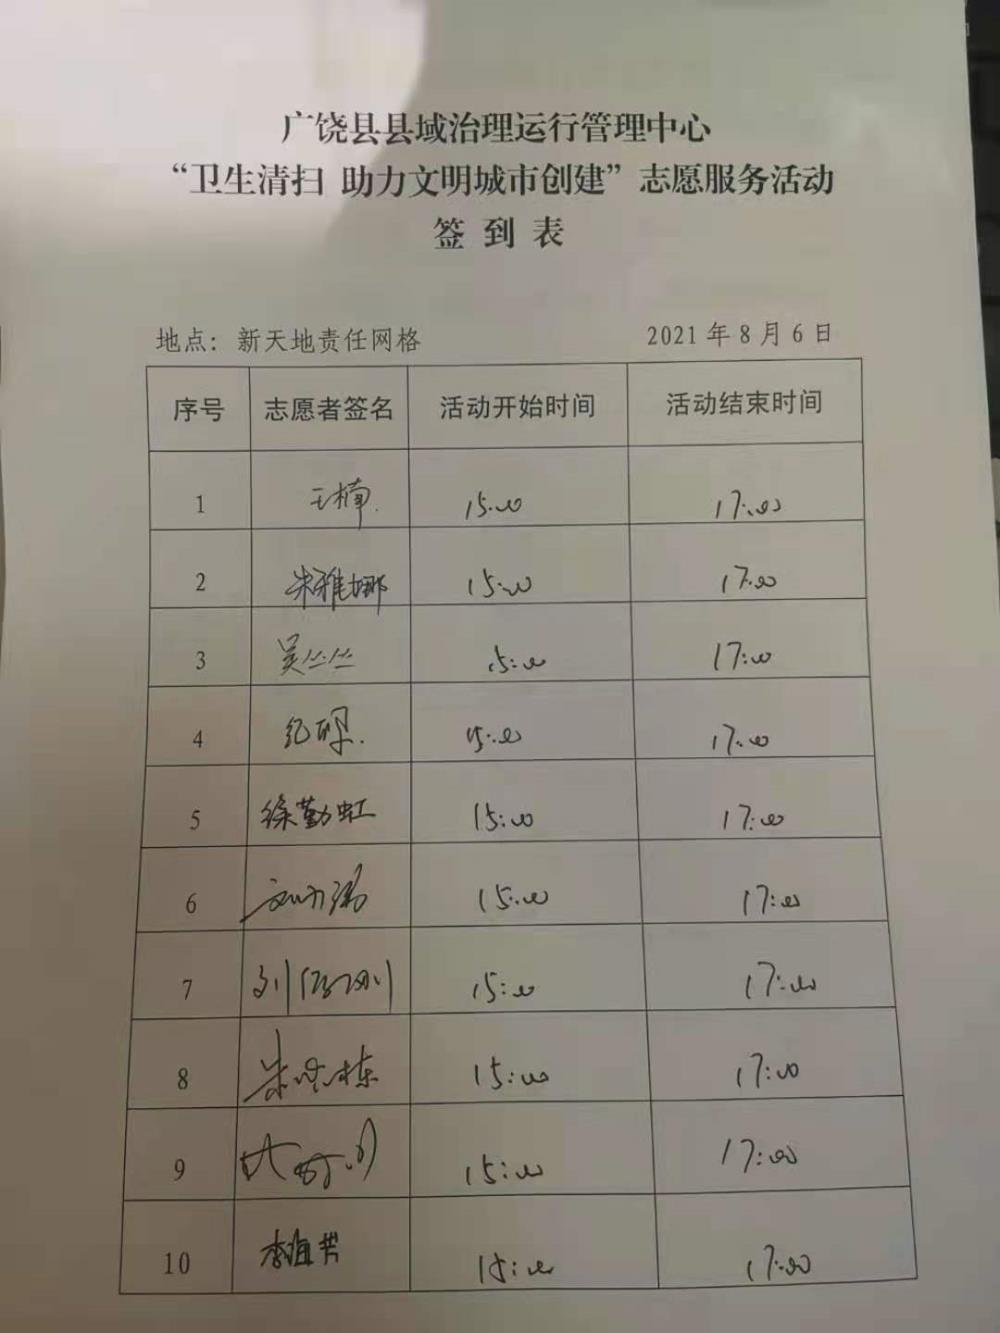 广饶县县域治理运行管理中心
“卫生清扫 助力文明城市创建”志愿服务活动
签到表
地点：新天地责任网格 2021年8月6日
序号 志愿者签名 活动开始时间 活动结束时间
1 王楠 15:00 17:00
2 朱雅娜 15:00 17:00
3 吴丝丝 15:00 17:00
4 纪砚 15:00 17:00
5 徐勤虹 15:00 17:00
6 15:00 17:00
7 刘 刚 15:00 17:00
8 朱 栋 15:00 17:00
9 15:00 17:00
10 李海芳 15:00 17:00